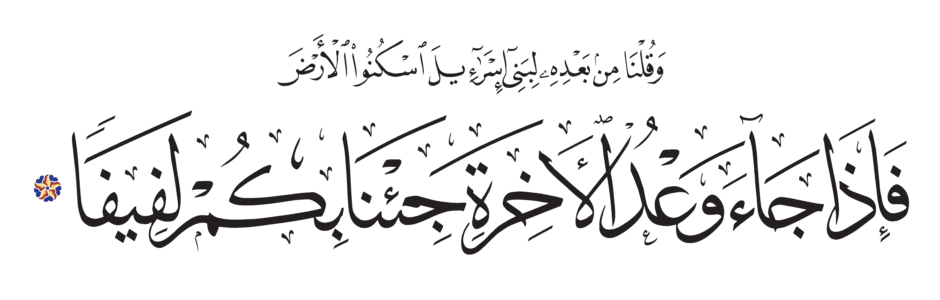 وَقُلْنَا مِنۢ بَعْدِهِۦ لِبَنِىٓ إِسْرَٰٓءِيلَ ٱسْكُنُوا۟ ٱلْأَرْضَ
فَإِذَا جَآءَ وَعْدُ ٱلْأَخِرَةِ جِئْنَا بِكُمْ لَفِيفًا